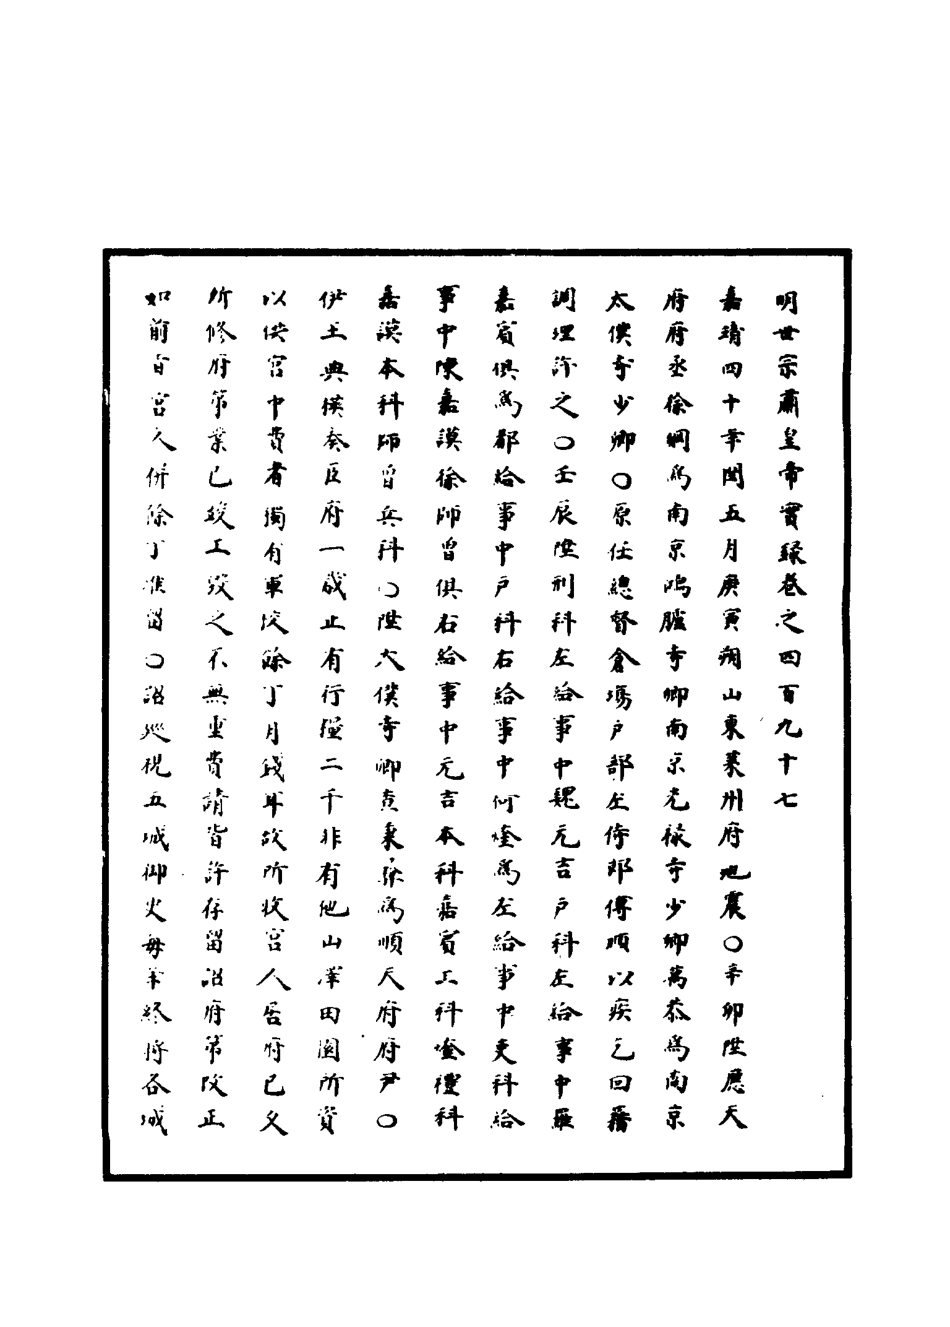 明世宗肅皇帝實錄卷之四百九十七
嘉靖四十年閏五月庚寅朔山東萊州府地震〇辛卯陞應天
府府丞徐綱爲南京鴻臚寺卿南京光祿寺少卿萬恭爲南京
太僕寺少卿〇原任總督倉塲戶部左侍郎傅頤以疾乞回籍
調理許之〇壬辰陞刑科左給事中魏元吉戶科左給事中羅
嘉賓俱爲都給事中戶科右給事中何煃爲左給事中吏科給
事中陳嘉謨徐師曾俱右給事中元吉本科嘉賓工科煃禮科
嘉謨本科師曾兵科〇陞太僕寺卿黃秉爲順天府府尹〇
伊王典楧奏臣府一歲止有行糧二千非有他山澤田園所資
以供宮中費者獨有軍校餘丁月錢耳故所收宮人居府已久
所修府第業已竣工毀之不無重費請皆許存留詔府第改正
如前旨宮人併餘丁准留〇詔廵視五城御史每年終將各城